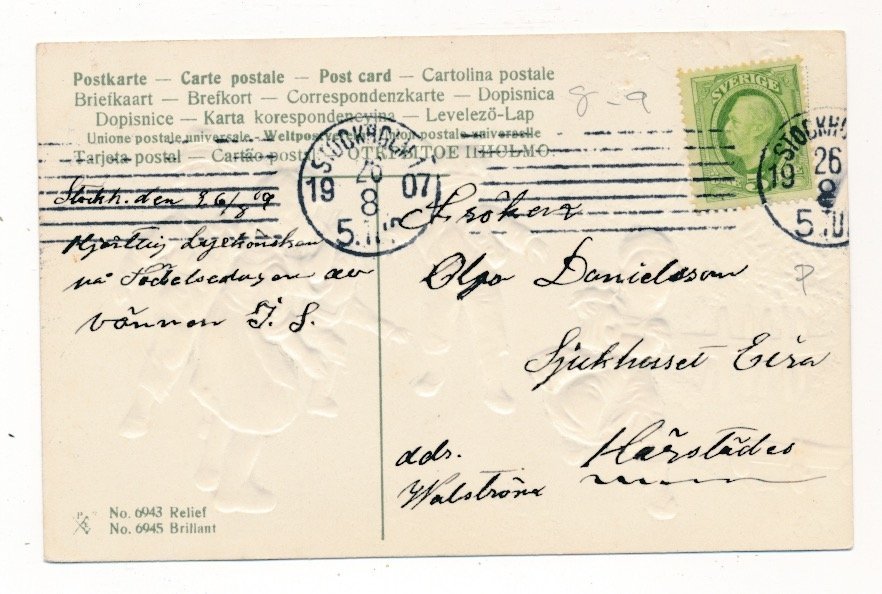 Postkarte — Carte postale — Post card — Cartolina postale
Briefkaart — Brefkort — Correspondenzkarte — Dopisnica
Dopisnice — Karta korespondencyjna — Levelező-Lap
Unione postale universale - Weltpostverein - Union postale universelle
Tarjeta postal — Cartão postal —
8-9
SVERIGE
STOCKHOLM
19 26 07
8
5.
STOCKHO
19 26
8
5.
Stockh. den 26/8 07
Hjertlig Lyckönskan
på Födelsedagen av
vännen J. S.
Fröken
Olga Danielsson
Sjukhuset Eira
Härstädes
adr.
Walström
P
No. 6943 Relief
No. 6945 Brillant